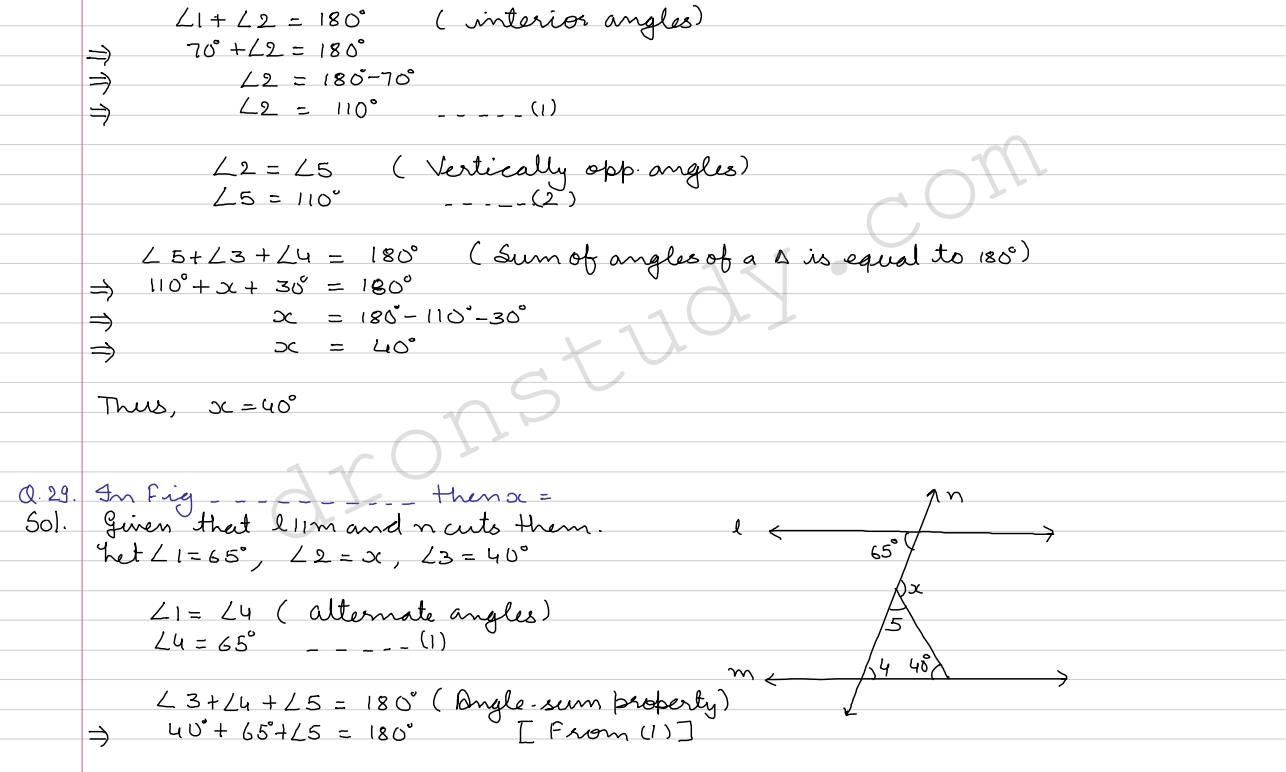 ∠1 + ∠2 = 180° ( interior angles)
⇒ 70° + ∠2 = 180°
⇒ ∠2 = 180° - 70°
⇒ ∠2 = 110° - - - - - (1)
∠2 = ∠5 ( Vertically opp. angles)
∠5 = 110° - - - - - (2)
∠5 + ∠3 + ∠4 = 180° ( Sum of angles of a Δ is equal to 180°)
⇒ 110° + x + 30° = 180°
⇒ x = 180° - 110° - 30°
⇒ x = 40°
Thus, x = 40°
Q.29. In Fig - - - - - - - - - - then x =
Sol. Given that l || m and n cuts them.
Let ∠1 = 65°, ∠2 = x, ∠3 = 40°
∠1 = ∠4 ( alternate angles)
∠4 = 65° - - - - - (1)
∠3 + ∠4 + ∠5 = 180° ( Angle-sum property)
⇒ 40° + 65° + ∠5 = 180° [ From (1) ]
n
l
65°
x
5
m
4 40°
dronstudy.com